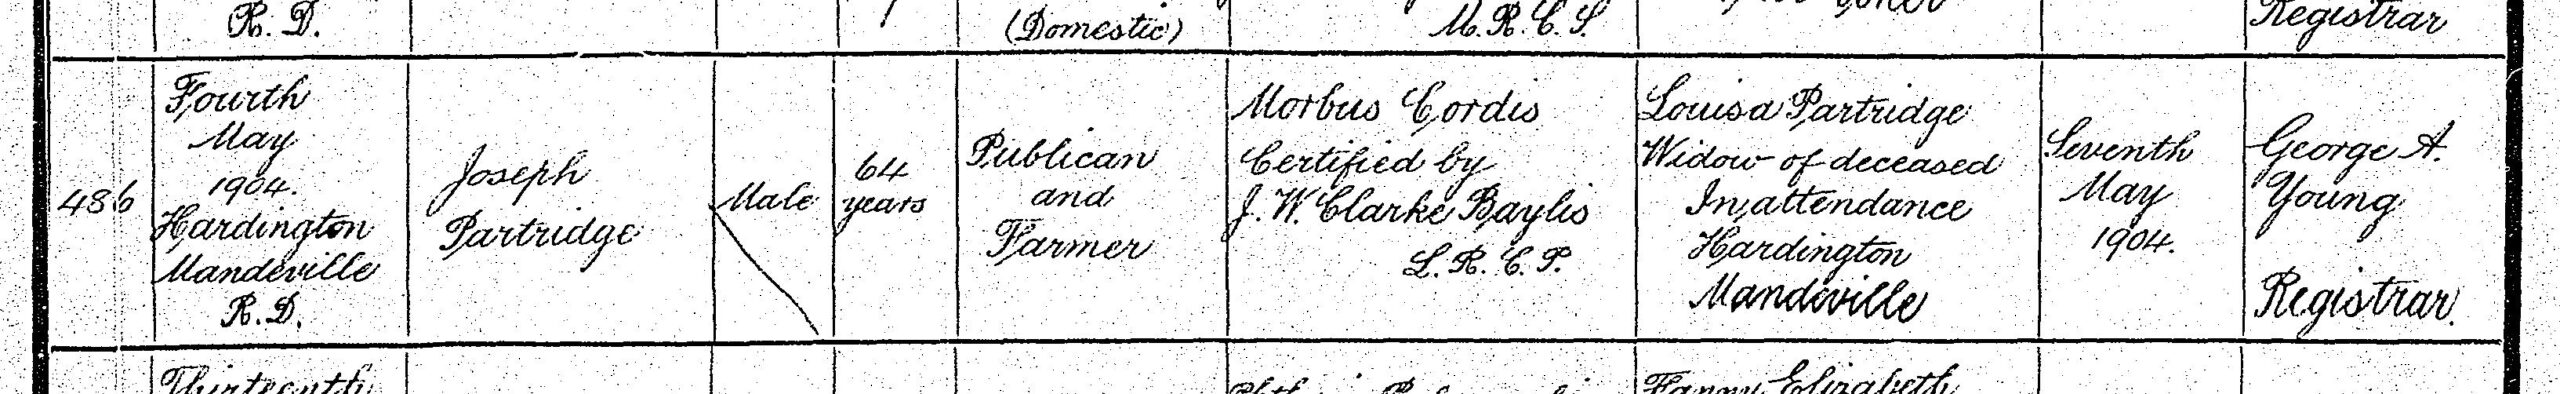 R. D.
(Domestic)
M. R. C. S.
Registrar
486
Fourth
May
1904.
Hardington
Mandeville
R.D.
Joseph
Partridge
Male
64
years
Publican
and
Farmer
Morbus Cordis
Certified by
J. W. Clarke Baylis
L. R. C. P.
Louisa Partridge
Widow of deceased
In attendance
Hardington
Mandeville
Seventh
May
1904.
George A.
Young
Registrar.
Thirteenth
Fanny Elizabeth